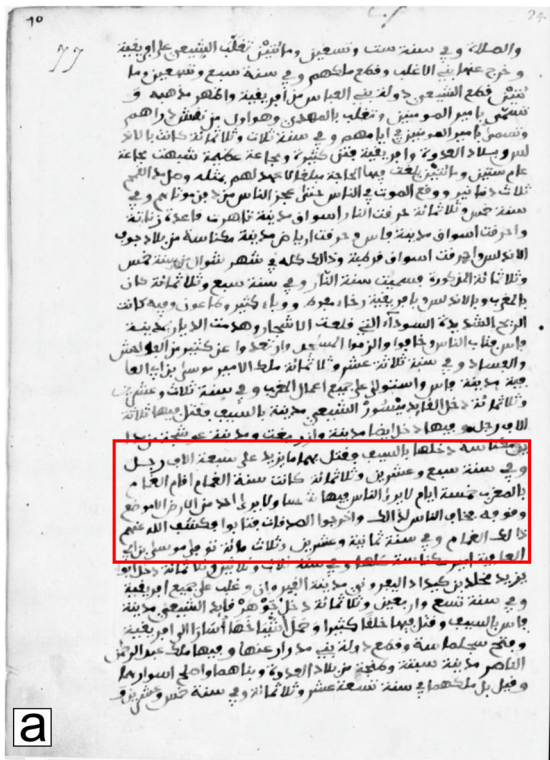 10
24
77
والصلاة وفي سنة ست وتسعين ومائتين تغلب الشيعي على افريقية
وخرج عنها بني الاغلب وقطع ملكهم وفي سنة سبع وتسعين وما
ئتين قطع الشيعي دولة بني العباس من افريقية واظهر مذهبه و
تسمى بامير المومنين وتغلب بالمهدي وهو اول من نقش دراهم
وتسمى بامير المومنين في ايامهم وفي سنة ثلاث وثلاثمائة كانت بالاند
لس وبلاد العدوة وافريقية فتن كثيرة ومجاعة عظيمة شبهت بمجاعة
عام ستين بلغت فيها الحاجة مبلغا لا عهد لهم بمثله وصل مد القمح
ثلاث دنانير ووقع الموت في الناس حتى عجز الناس من دفن موتاهم وفي
سنة خمس وثلاثمائة حرقت النار اسواق مدينة تاهرت قاعدة زناتة
واحرقت اسواق مدينة فاس وحرقت ارباض مدينة مكناسة من بلاد جوف
الاندلس واحرقت اسواق قرطبة وذالك كله في شهر شوال من سنة خمس
وثلاثمائة المذكورة فسميت سنة النار وفي سنة سبع وثلاثمائة كان
بالمغرب وبالاندلس وبافريقية رخاء مفرط ووباء كثير وطاعون وفيه كانت
الريح الشديدة السوداء التي قلعت الاشجار وهدمت الديار بمدينة
فاس فتاب الناس وخافوا والزموا المسجد وارتدعوا عن كثير من الفواحش
والفساد وفي سنة ثلاثة عشر وثلاثمائة ملك الامير موسى بن ابي العا
فية مدينة فاس واستولى على جميع اعمال المغرب وفي سنة ثلاث وعشرين
وثلاثمائة دخل القايد ميسور الشيعي مدينة بالسيف فقتل فيها ثلاثة
الاف رجل وفيها دخل ايضا مدينة ومدينة عوسجة من
مكناسة دخلها بالسيف وقتل بهما ما يزيد على سبعة الاف رجل
وفي سنة سبع وعشرين وثلاثمائة كانت سنة الغمام اقام الغمام
بالمغرب خمسة ايام لا يرى الناس فيها شمسا ولا يرى احد من الارض الا موضع
وقوفه فخاف الناس لذالك واخرجوا الصدقات فتابوا فكشف الله عنهم
ذالك الغمام وفي سنة ثمانية وعشرين وثلاث مائة توفي موسى بن ابي
العافية امير مكناسة كلها وفي سنة ثلاث وثلاثين وثلاثمائة دخل ابو
يزيد مخلد بن كيداد اليفروني مدينة القيروان وغلب على جميع افريقية
وفي سنة تسع واربعين وثلاثمائة دخل جوهر قايد الشيعي مدينة
فاس بالسيف وقتل فيها خلقا كثيرا وحمل اشياخها اسارا الى افريقية
وفتح سجلماسة وقطع دولة بني مدرار عنها وفيها ملك عبد الرحمن
الناصر مدينة سبتة وطنجة من بلاد العدوة وبناهما واصلح اسوارهما
وقيل بل ملكهما في سنة تسعة عشر وثلاثمائة وفي سنة خمس وعشرين و
a